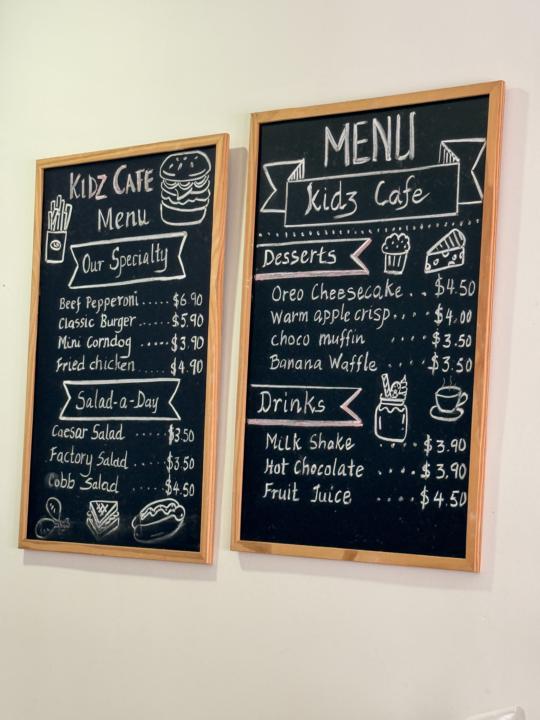 KIDZ CAFE
Menu
Our Specialty
Beef Pepperoni ..... $6.90
Classic Burger ..... $5.90
Mini Corndog ..... $3.90
Fried chicken .... $4.90
Salad-a-Day
Caesar Salad ..... $3.50
Factory Salad .... $3.50
Cobb Salad .... $4.50
MENU
Kidz Cafe
Desserts
Oreo Cheesecake .. $4.50
Warm apple crisp .... $4.00
choco muffin .... $3.50
Banana Waffle .... $3.50
Drinks
Milk Shake .... $3.90
Hot Chocolate .... $3.90
Fruit Juice .... $4.50